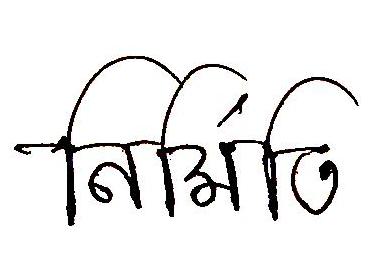 নির্মিতি